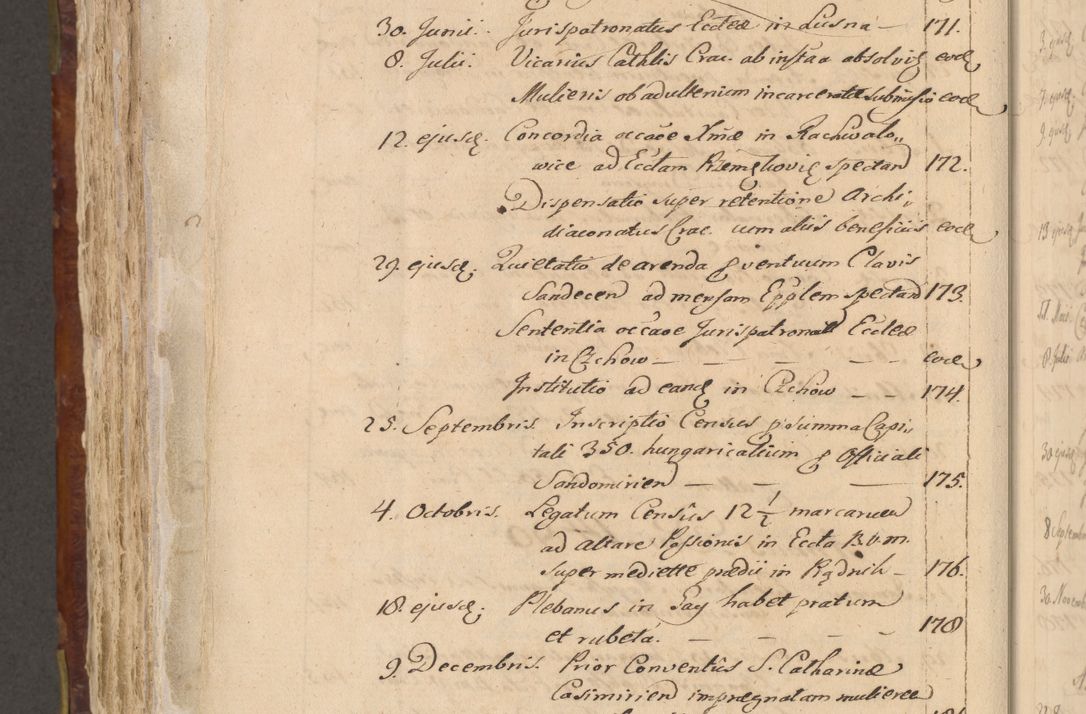 30. Junii. Jurispatronatus Ecclæ in Lusna — 171.
8. Julii. Vicarius Cathlis Crac. ab instaa absolvit eod
Mulieris ob adulterium incarceratæ submissio eod
12. ejusd. Concordia occãoe Xmæ in Rachwalo„
wice ad Ecclam spectan 172.
Dispensatio super retentione Archi„
diaconatus Crac. cum aliis beneficiis eod
29. ejusd. Quietatio de arenda proventuum Clavis
Sandecen ad mensam Epplem spectan 173.
Sententia occãoe Jurispatronatus Ecclæ
in Czchow — — — — — eod
Institutio ad eand in Czchow — — 174.
25. Septembris. Inscriptio Census pro summa Capi„
tali 350. hungaricalium pro Officiali
Sandomirien — — — 175.
4. Octobris. Legatum Censûs 12 1/2 marcarum
ad altare Passionis in Eccta B.V.M.
super medietate prædii in Rządnik — 176.
18. ejusd. Plebanus in Gay habet pratum
et rubeta. — — — — — 178
9. Decembris. Prior Conventûs S. Catharinæ
Casimirien imprægnatam mulierem